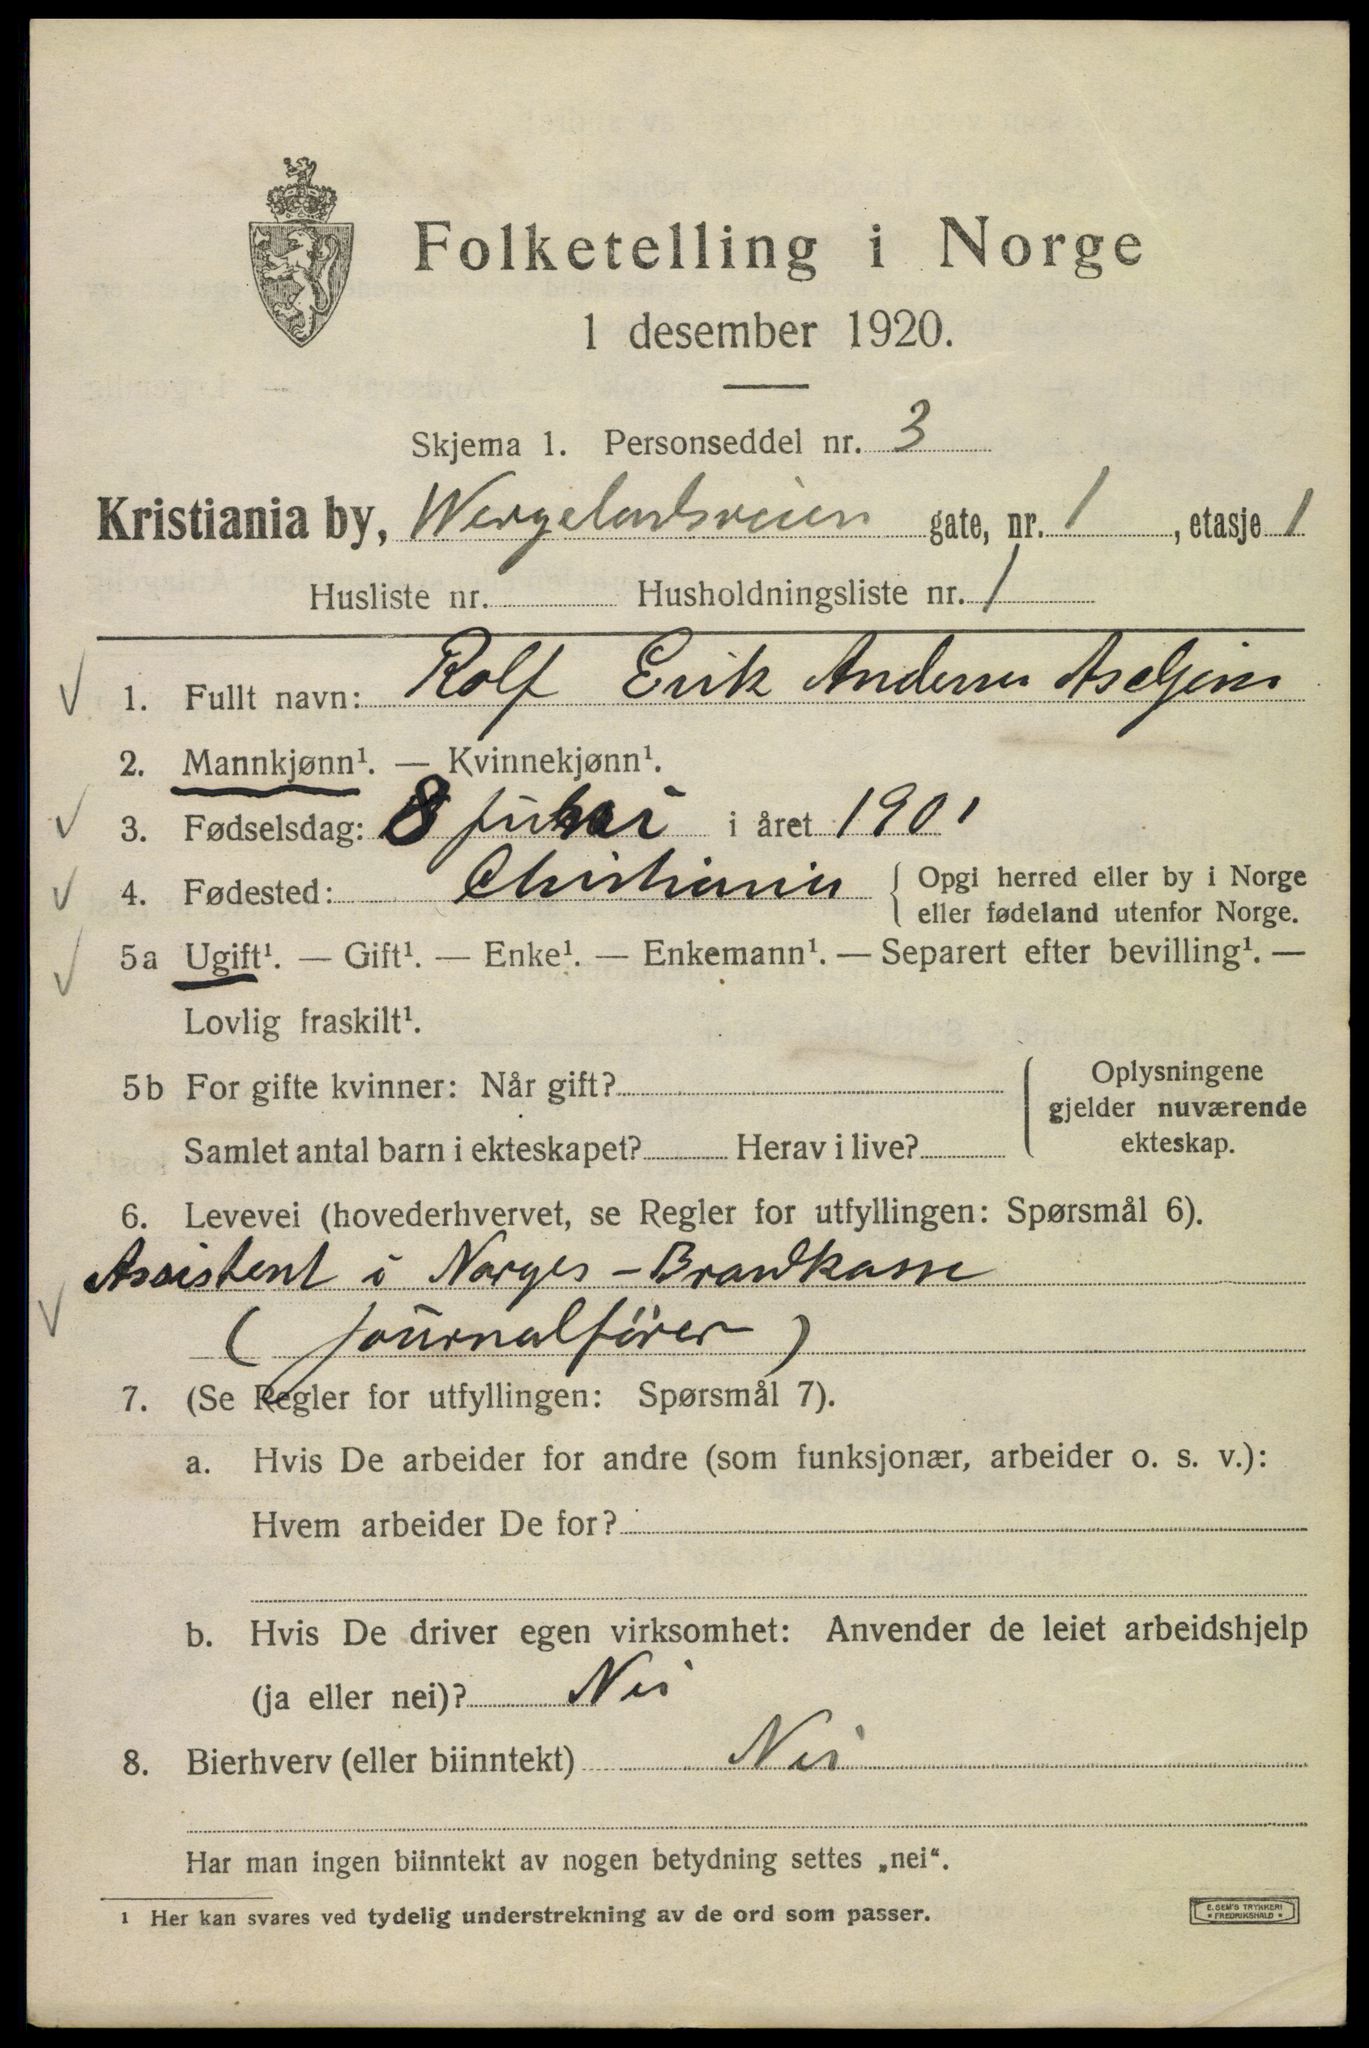 Folketelling i Norge
1 desember 1920.
Skjema 1. Personseddel nr. 3
Kristiania by, Wergelandsveien gate, nr. 1, etasje 1
Husliste nr. Husholdningsliste nr. 1
1. Fullt navn: Rolf Erik Andersen
2. Mannkjønn¹. — Kvinnekjønn¹.
3. Fødselsdag: 8 i året 1901
4. Fødested: Christiania { Opgi herred eller by i Norge
eller fødeland utenfor Norge.
5a Ugift¹. — Gift¹. — Enke¹. — Enkemann¹. — Separert efter bevilling¹. —
Lovlig fraskilt¹.
5b For gifte kvinner: Når gift?
Samlet antal barn i ekteskapet? Herav i live?
Oplysningene
gjelder nuværende
ekteskap.
6. Levevei (hovederhvervet, se Regler for utfyllingen: Spørsmål 6).
Assistent i Norges - Brandkasse
(journalfører)
7. (Se Regler for utfyllingen: Spørsmål 7).
a. Hvis De arbeider for andre (som funksjonær, arbeider o. s. v.):
Hvem arbeider De for?
b. Hvis De driver egen virksomhet: Anvender de leiet arbeidshjelp
(ja eller nei)? Nei
8. Bierhverv (eller biinntekt) Nei
Har man ingen biinntekt av nogen betydning settes „nei“.
¹ Her kan svares ved tydelig understrekning av de ord som passer.
E. SEM'S TRYKKERI
FREDRIKSHALD